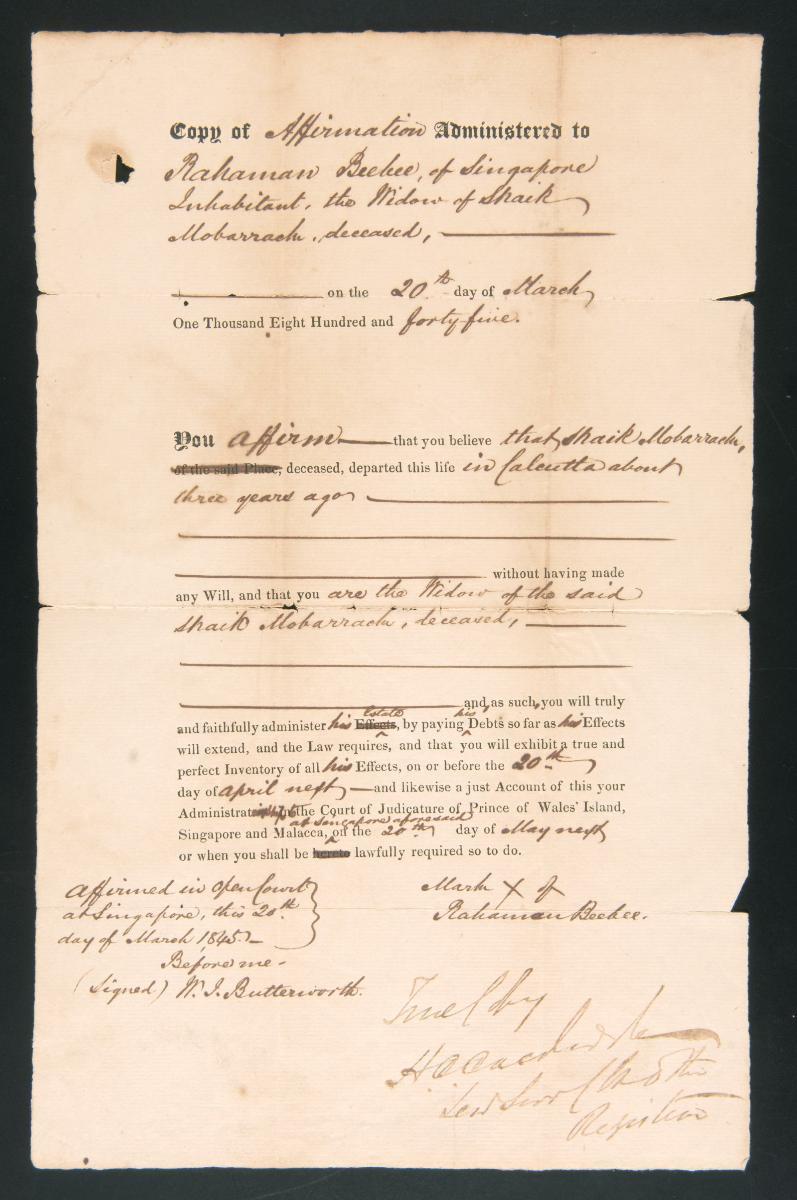 Copy of Affirmation Administered to
Rahaman Beebee, of Singapore
Inhabitant, the Widow of Shaik
Mobarrack, deceased,
on the 20th day of March
One Thousand Eight Hundred and forty five.
You affirm that you believe that Shaik Mobarrack,
of the said Place, deceased, departed this life in Calcutta about
three years ago
without having made
any Will, and that you are the Widow of the said
Shaik Mobarrack, deceased,
and as such, you will truly
estate his
and faithfully administer his Effects, by paying Debts so far as his Effects
will extend, and the Law requires, and that you will exhibit a true and
perfect Inventory of all his Effects, on or before the 20th
day of april next and likewise a just Account of this your
Administration in the Court of Judicature of Prince of Wales' Island,
at Singapore aforesaid
Singapore and Malacca, on the 20th day of May next
or when you shall be hereto lawfully required so to do.
Affirmed in Open Court
at Singapore, this 20th
day of March 1845.
Before me
(Signed) W. J. Butterworth.
Mark X of
Rahaman Beebee.
True C by
Registrar